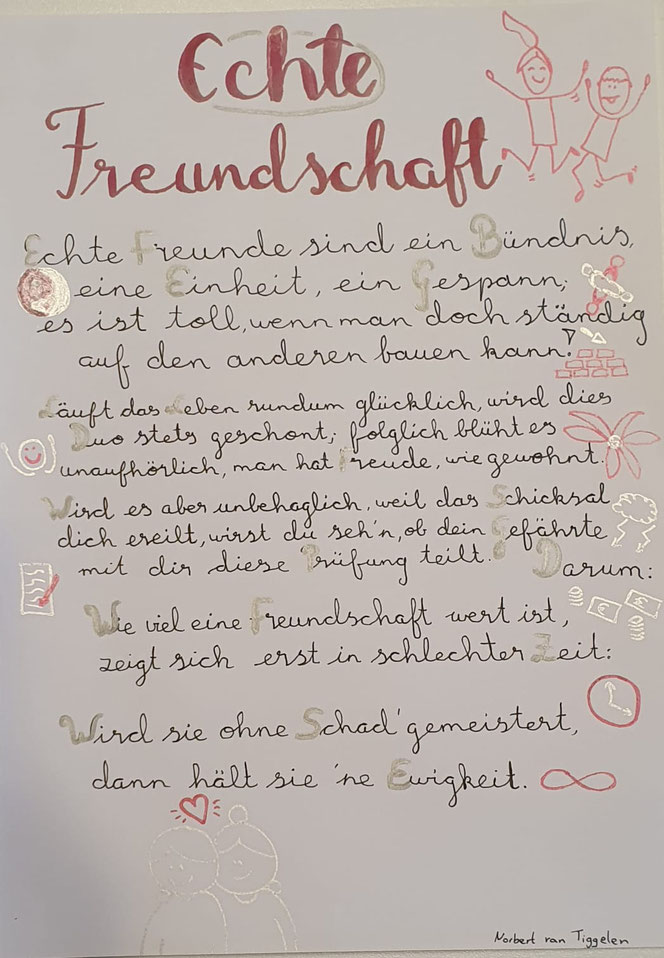 Echte
Freundschaft
Echte Freunde sind ein Bündnis,
eine Einheit, ein Gespann;
es ist toll, wenn man doch ständig
auf den anderen bauen kann!
Läuft das Leben rundum glücklich, wird dies
Duo stets geschont; folglich blüht es
unaufhörlich, man hat Freude, wie gewohnt.
Wird es aber unbehaglich, weil das Schicksal
dich ereilt, wirst du seh'n, ob dein Gefährte
mit dir diese Prüfung teilt. Darum:
Wie viel eine Freundschaft wert ist,
zeigt sich erst in schlechter Zeit:
Wird sie ohne Schad' gemeistert,
dann hält sie 'ne Ewigkeit.
Norbert van Tiggelen